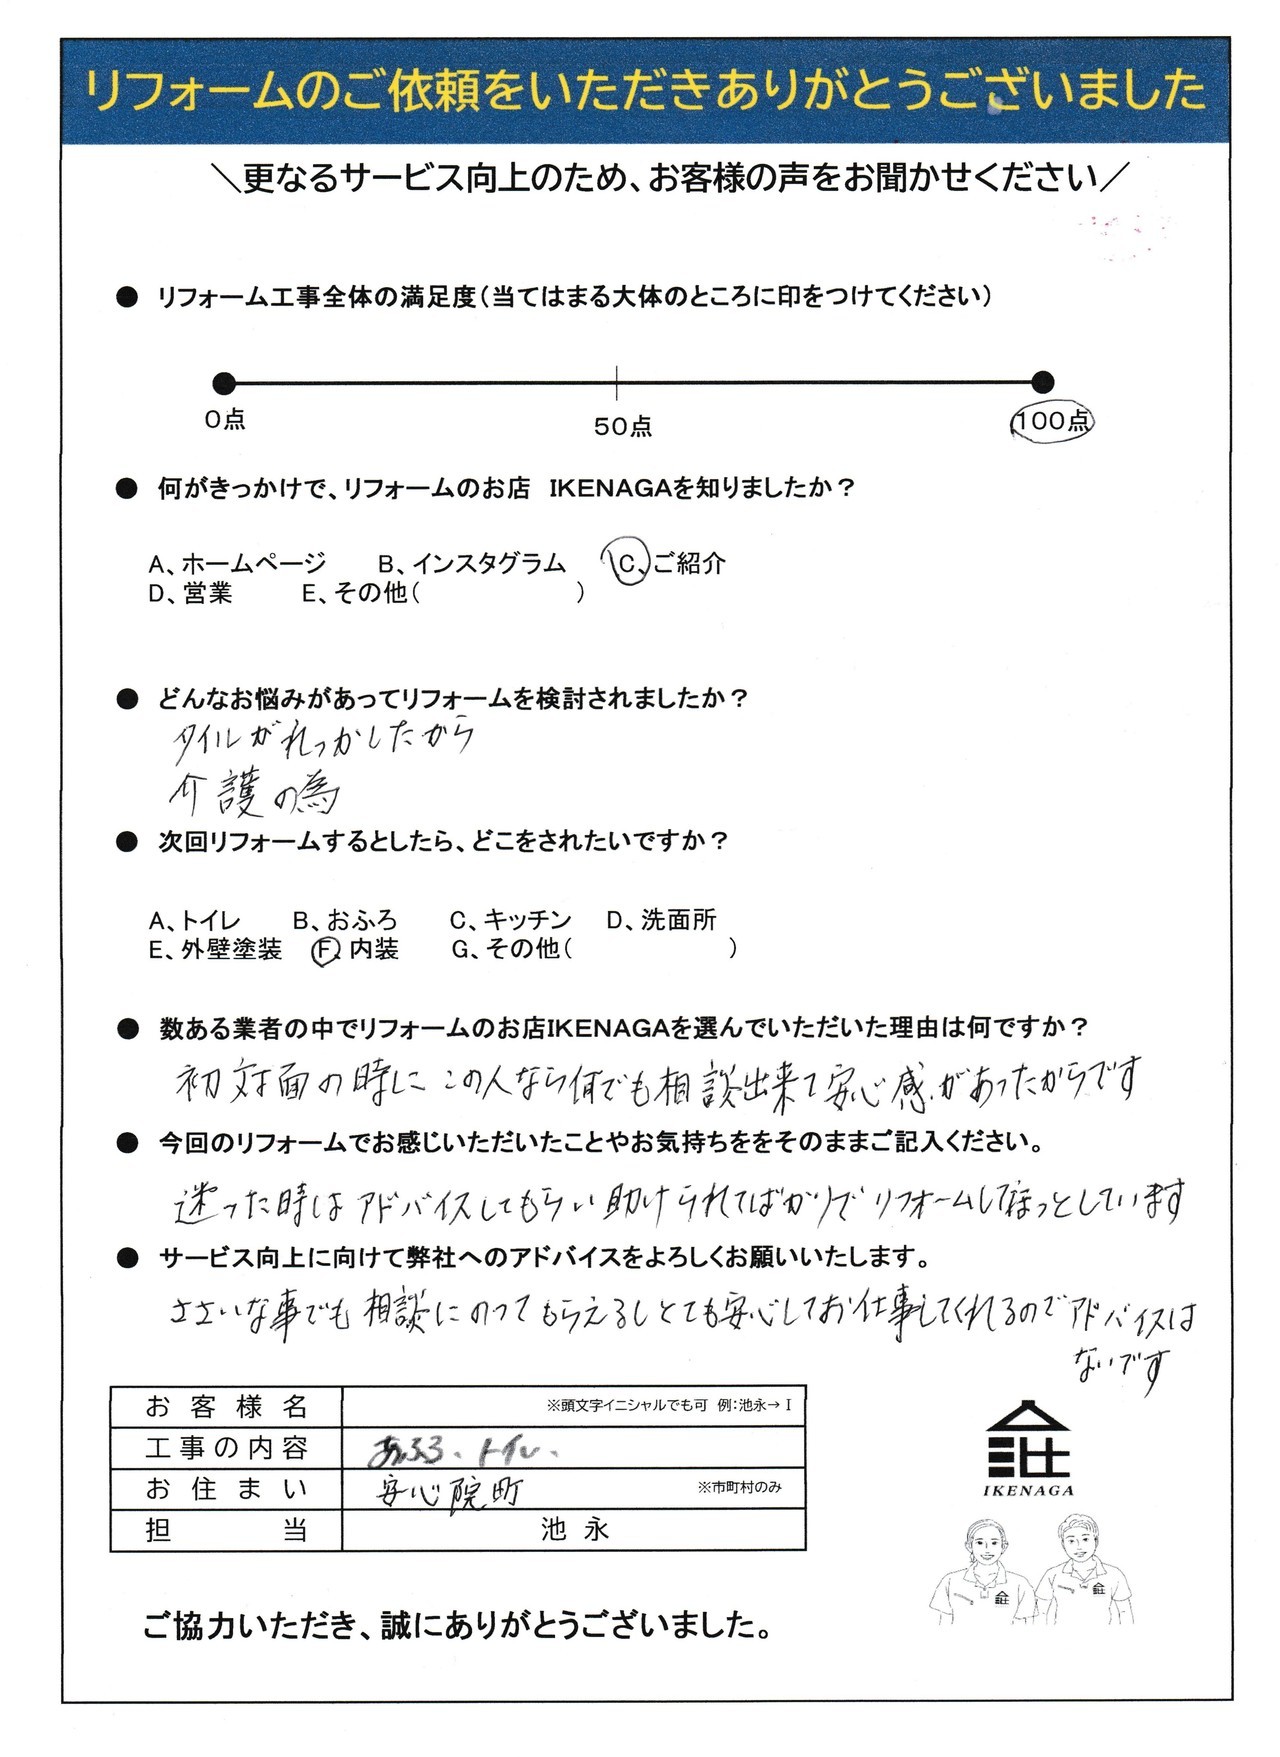 リフォームのご依頼をいただきありがとうございました
＼更なるサービス向上のため、お客様の声をお聞かせください／
● リフォーム工事全体の満足度(当てはまる大体のところに印をつけてください)
0点 50点 100点
● 何がきっかけで、リフォームのお店 IKENAGAを知りましたか？
A、ホームページ B、インスタグラム C、ご紹介
D、営業 E、その他( )
● どんなお悩みがあってリフォームを検討されましたか？
タイルがれっかしたから
介護の為
● 次回リフォームするとしたら、どこをされたいですか？
A、トイレ B、おふろ C、キッチン D、洗面所
E、外壁塗装 F、内装 G、その他( )
● 数ある業者の中でリフォームのお店IKENAGAを選んでいただいた理由は何ですか？
初対面の時に この人なら何でも相談出来て安心感があったからです
● 今回のリフォームでお感じいただいたことやお気持ちををそのままご記入ください。
迷った時は アドバイスしてもらい助けられてばかりで リフォームしてほっとしています
● サービス向上に向けて弊社へのアドバイスをよろしくお願いいたします。
ささいな事でも 相談にのってもらえるしとても安心してお仕事してくれるのでアドバイスは
ないです
お客様名 ※頭文字イニシャルでも可 例:池永→I
工事の内容 おふろ、トイレ、
お住まい 安心院町 ※市町村のみ
担当 池永
IKENAGA
ご協力いただき、誠にありがとうございました。